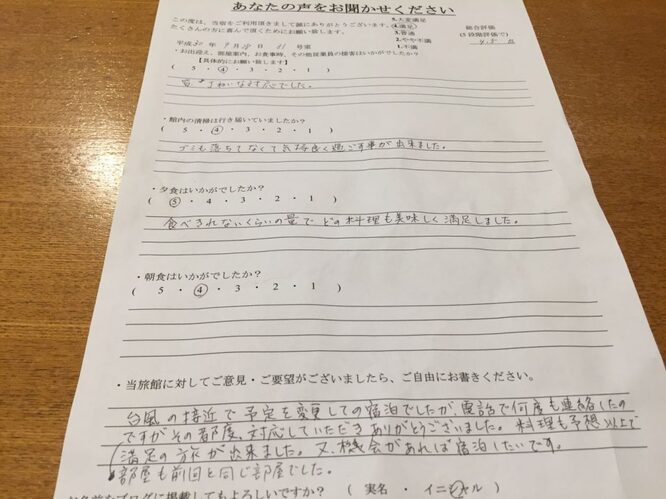 あなたの声をお聞かせください
この度は、当宿をご利用頂きまして誠にありがとうございます。
たくさんの方に喜んで頂くためにお願い致します。
5.大変満足
4.満足
3.普通
2.やや不満
1.不満
総合評価
(5段階評価で)
平成30年 9月 日 11号室
・お出迎え、部屋案内、お食事時、その他従業員の接客はいかがでしたか?
【具体的にお願い致します】
( 5 ・ 4 ・ 3 ・ 2 ・ 1 )
丁ねいな対応でした。
・館内の清掃は行き届いていましたか?
( 5 ・ 4 ・ 3 ・ 2 ・ 1 )
ゴミも落ちてなくて気持良く過ごす事が出来ました。
・夕食はいかがでしたか?
( 5 ・ 4 ・ 3 ・ 2 ・ 1 )
食べきれないくらいの量で、どの料理も美味しく満足しました。
・朝食はいかがでしたか?
( 5 ・ 4 ・ 3 ・ 2 ・ 1 )
・当旅館に対してご意見・ご要望がございましたら、ご自由にお書きください。
台風の接近で予定を変更しての宿泊でしたが、電話で何度も連絡したの
ですがその都度、対応していただきありがとうございました。料理も予想以上で
満足の旅が出来ました。又、機会があれば宿泊したいです。
部屋も前回と同じ部屋でした。
お名前をブログに掲載してもよろしいですか? ( 実名 ・ イニシャル